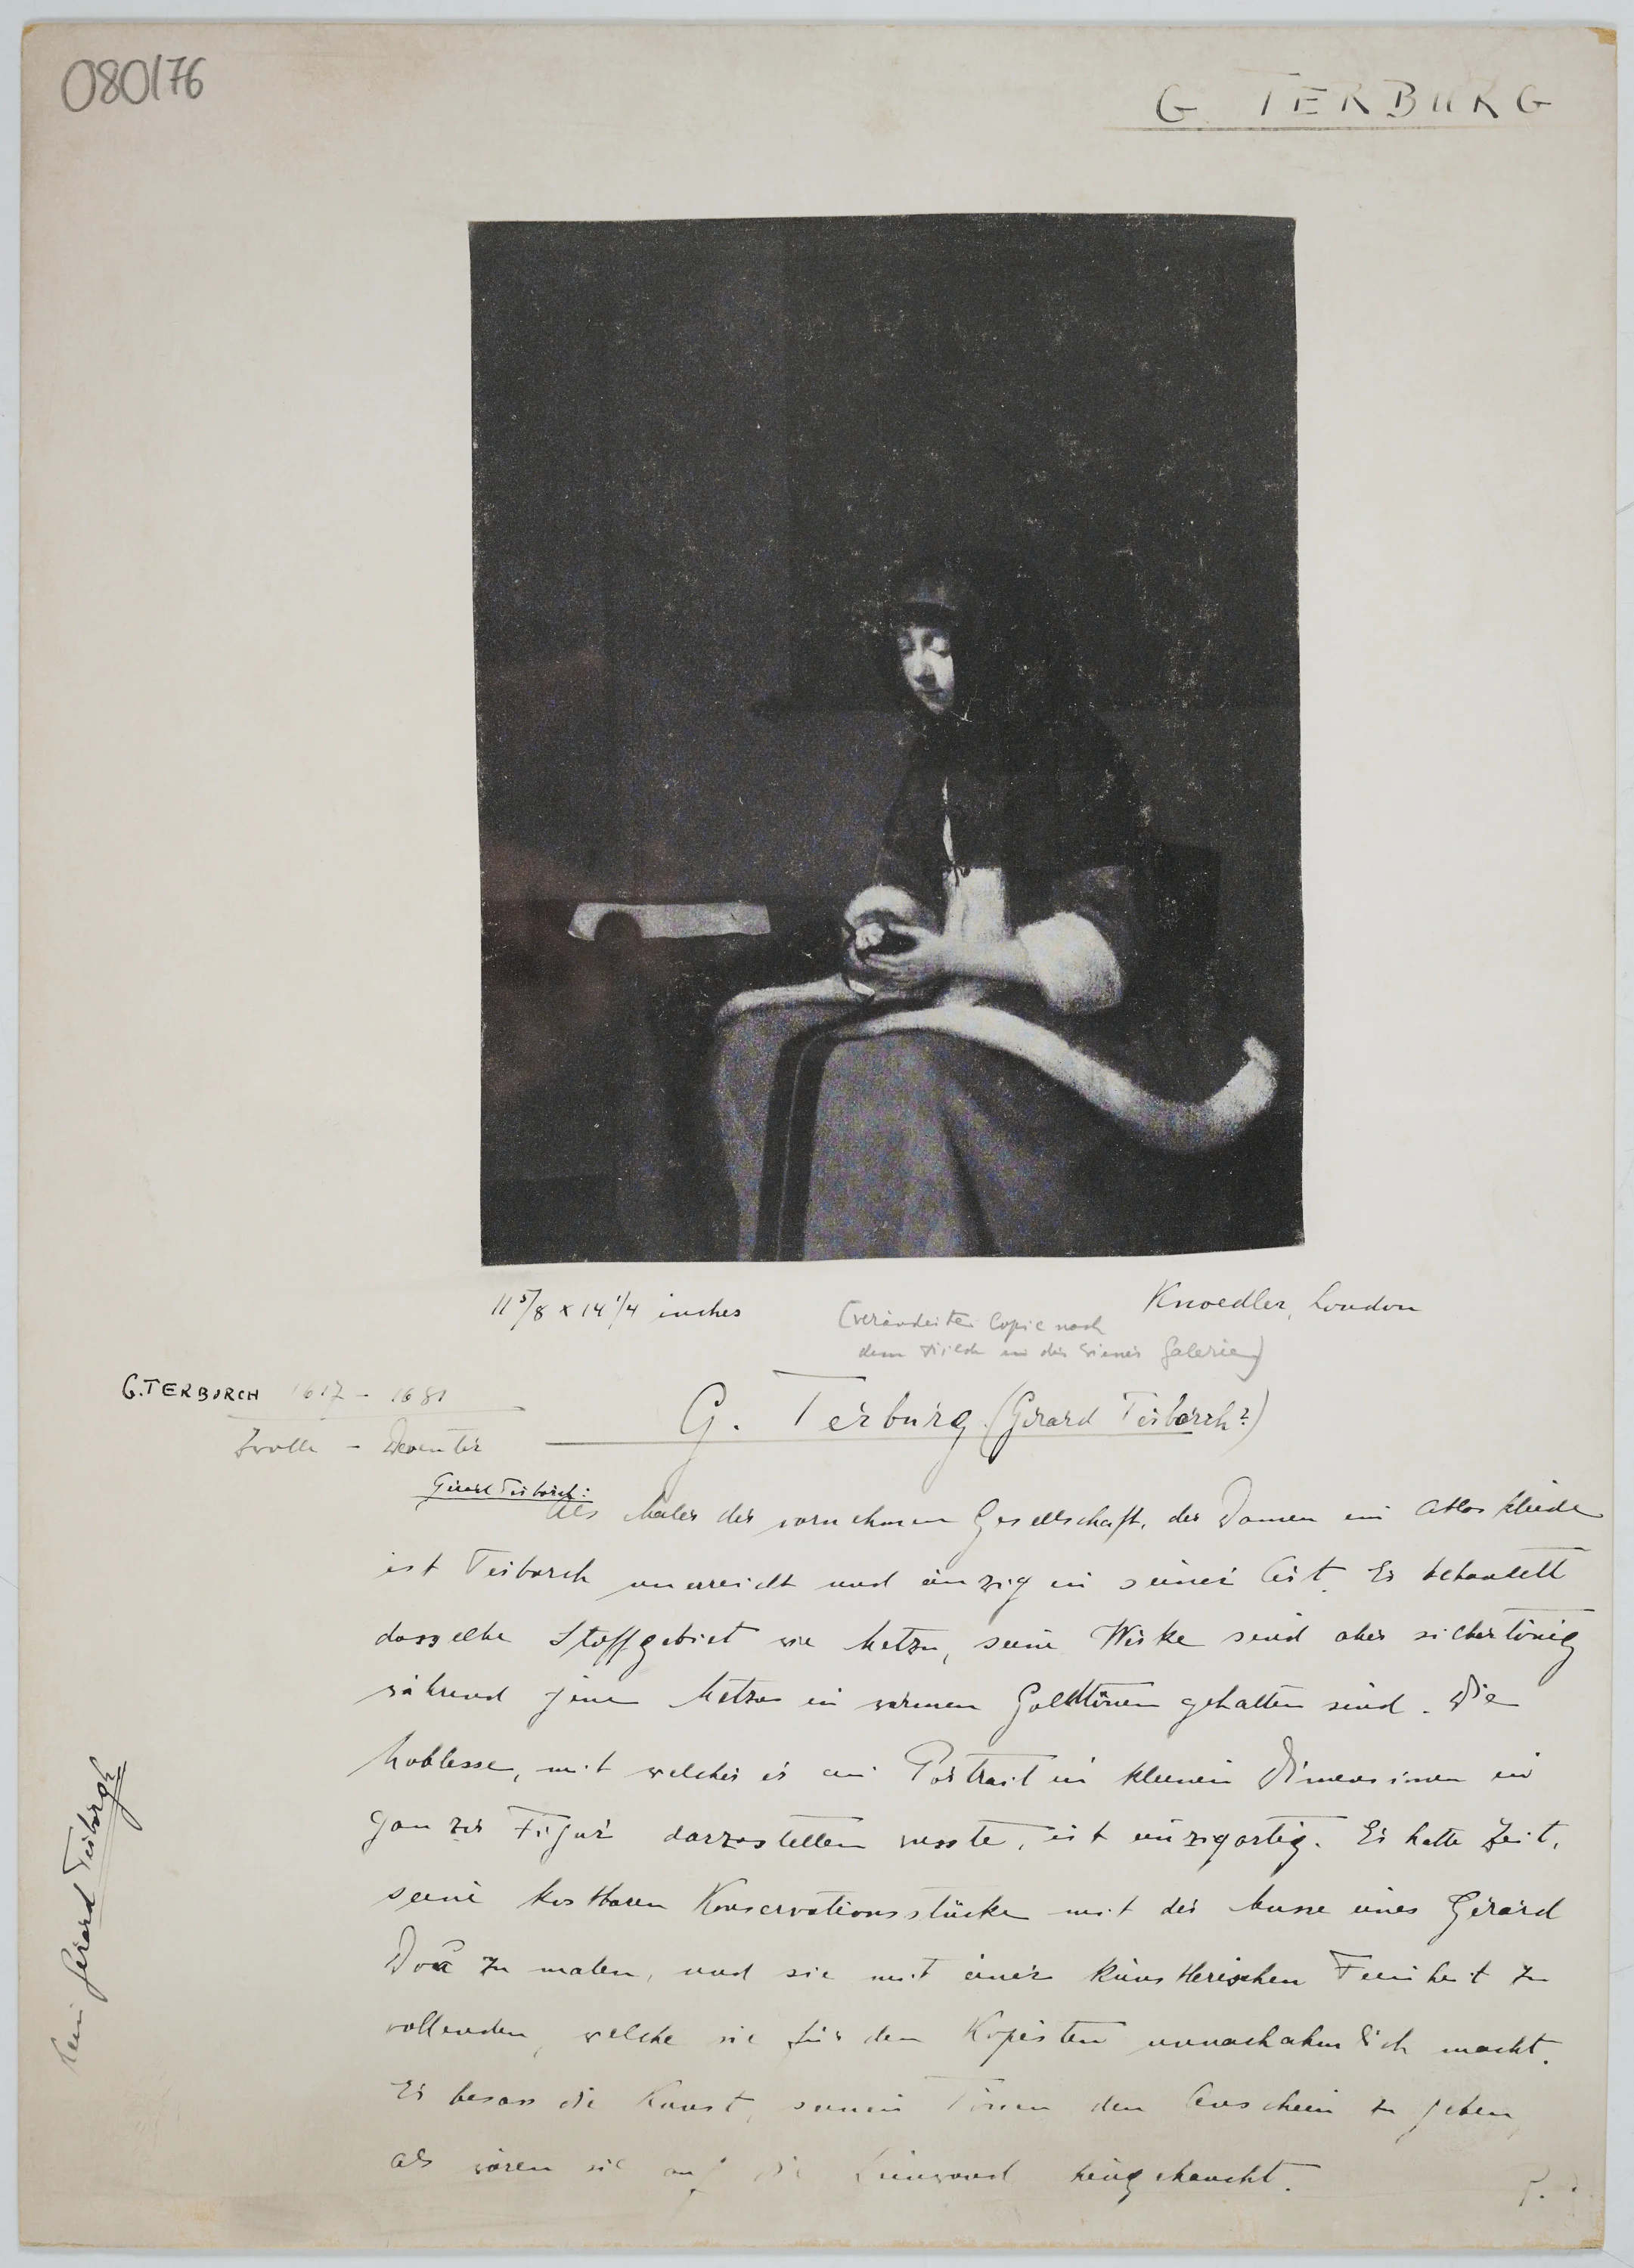 080/76
G. TERBURG
11 5/8 x 14 1/4 inches
Knoedler, London
(veränderte Copie nach
dem in der Wiener Galerie)
G. TERBORCH 1617 - 1681
Zwolle - Deventer
G. Terburg (Gerard Terborch?)
Gerard Terborch:
Als Maler der vornehmen Gesellschaft, der Damen im Atlaskleide
ist Terborch unerreicht und einzig in seiner Art. Er behandelt
dasselbe Stoffgebiet wie Metzu, seine Werke sind aber silbertönig
während jene Metzus in warmen Goldtönen gehalten sind. Die
Noblesse, mit welcher er ein Portrait in kleinen Dimensionen in
ganzer Figur darzustellen wusste, ist einzigartig. Er hatte Zeit,
seine kostbaren Konservationsstücke mit der Musse eines Gerard
Dou zu malen, und sie mit einer künstlerischen Feinheit zu
vollenden, welche sie für den Kopisten unnachahmlich macht.
Er besass die Kunst, seinen Tönen den Anschein zu geben,
als wären sie auf die Leinwand hingehaucht.
Kein Gerard Terborgh